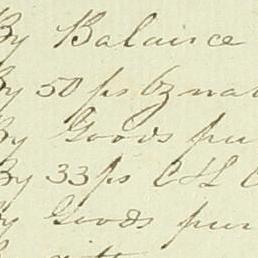 By Balance
By 50 ps
By Goods pur
By 33 ps C & L
By Goods pur